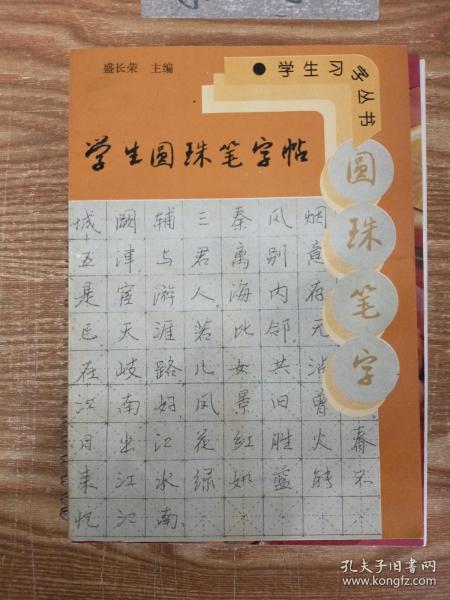 盛长荣 主编
●学生习字丛书
学生圆珠笔字帖
圆珠笔字
城阙辅三秦风烟
五津与君离别意
是宦游人海内存
已天涯若比邻无
在岐路儿女共沾
江南好风景旧曾
日出江花红胜火春
来江水绿如蓝能不
忆江南
孔夫子旧书网
www.kongfz.com